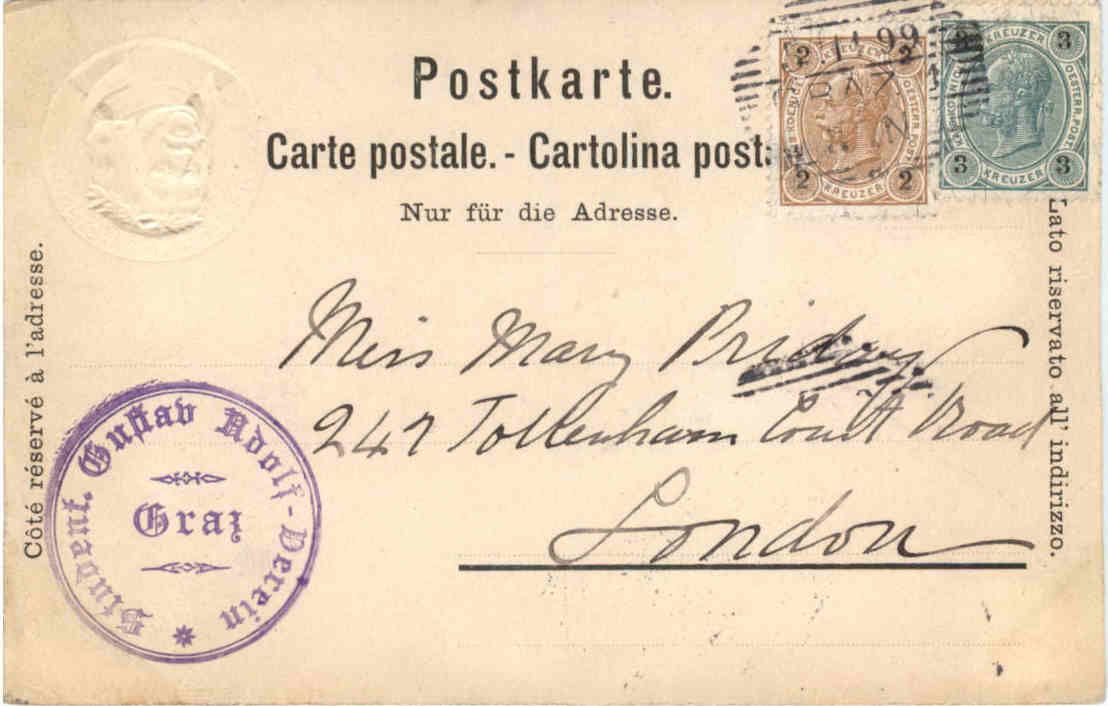 Postkarte.
Carte postale. - Cartolina post
Nur für die Adresse.
Côté réservé à l'adresse.
Lato riservato all' indirizzo.
2 2
KREUZER
OESTERR. POST
2 2
KREUZER
3 3
KREUZER
OESTERR. POST
3 3
KREUZER
99
Miss Mary
247 Tottenham Court Road
London
Student. Gustav Adolf-Verein
Graz